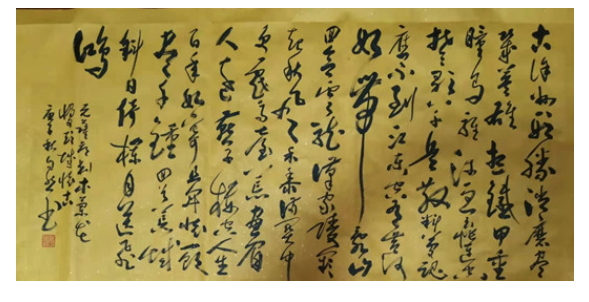 古徐州形胜消磨尽
几英雄想铁甲重
瞳乌骓汗血玉帐连空
楚歌八千兵散料梦魂
应不到江东空有黄河
如带乱山
回合云龙汉家陵阙
起秋风禾黍满关中
更戏马台荒画眉
人远燕子楼空人生
百年如寄且开怀一饮
尽千钟回首荒城
斜日倚栏目送飞
鸿
元萨都剌木兰花
慢彭城怀古
书